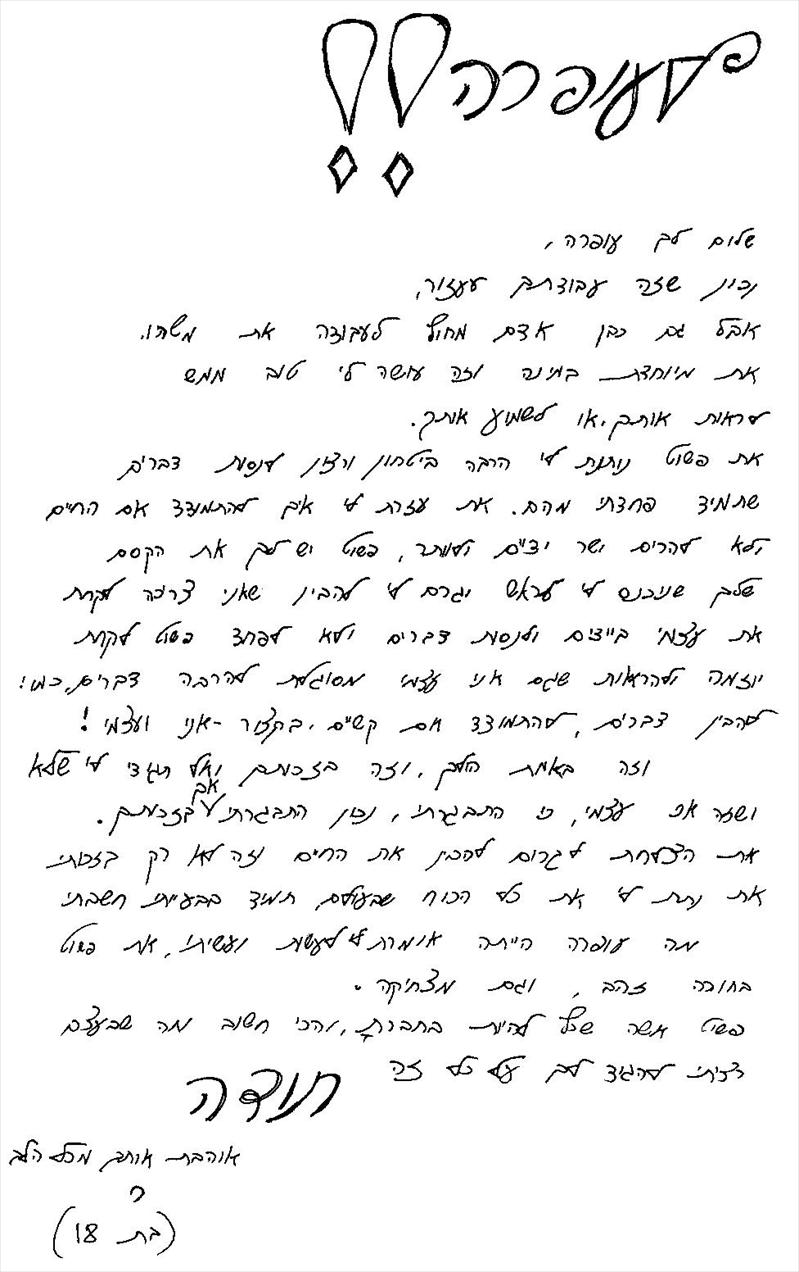 לעופרה!!
שלום לך עופרה,
נכון שזה עבודתך לעזור,
אבל גם כבן אדם מחוץ לעבודה את משהו.
את מיוחדת במינה וזה עושה לי טוב ממש
לראות אותך, או לשמוע אותך.
את פשוט נותנת לי הרבה ביטחון ורצון לנסות דברים
שתמיד פחדתי מהם. את עזרת לי איך להתמודד אם החיים
ולא להרים ישר ידיים ולוותר, פשוט יש לך את הקסם
שלך שנכנס לי לראש וגרם לי להבין שאני צריכה לקחת
את עצמי בידיים ולנסות דברים ולא לפחד פשוט לקחת
יוזמה ולהראות שגם אני עצמי מסוגלת להרבה דברים, כמו!
להבין דברים, להתמודד אם קשיים, בקצור - אני ועצמי!
וזה באמת הולך, וזה בזכותך ואל תגדי לי שלא
ושזה אני עצמי, כי התבגרתי, נכון התבגרתי אך בזכותך.
את הצלחת לגרום להבין את החיים וזה לא רק בזכותי
את נתת לי את כל הכוח שבעולם, תמיד בבעייתי חשבתי
מה עופרה הייתה אומרת לי לעשות ועשיתי, את פשוט
בחורה זהב, וגם מצחיקה.
פשוט אשה שכל להיות בחברתך, והכי חשוב מה שבעצם
רציתי להגיד לך על כל זה
תודה
אוהבת אותך מכל הלב
ר
(בת 18)